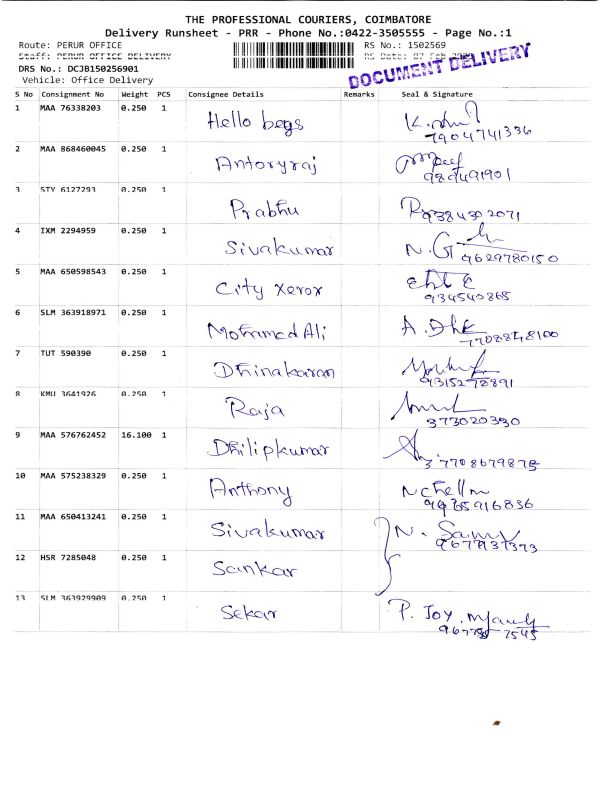 THE PROFESSIONAL COURIERS, COIMBATORE
Delivery Runsheet - PRR - Phone No.:0422-3505555 - Page No.:1
Route: PERUR OFFICE RS No.: 1502569
Staff: PERUR OFFICE DELIVERY RS Date: 07 Feb
DRS No.: DCJB150256901
DOCUMENT DELIVERY
Vehicle: Office Delivery
S No Consignment No Weight PCS Consignee Details Remarks Seal & Signature
1 MAA 76338203 0.250 1 Hello begs
7904741336
2 MAA 868460045 0.250 1 Antonyraj
3 STY 6127293 0.250 1 Prabhu
9384302071
4 IXM 2294959 0.250 1 Sivakumar N.G
9629780150
5 MAA 650598543 0.250 1 City Xerox
934540865
6 SLM 363918971 0.250 1 Mohamed Ali
7708848100
7 TUT 590390 0.250 1 Dhinakaran
8 KMU 3641926 0.250 1 Raja
373020330
9 MAA 576762452 16.100 1 Dhilipkumar
10 MAA 575238329 0.250 1 Anthony
11 MAA 650413241 0.250 1 Sivakumar N.
12 HSR 7285048 0.250 1 Sankar
13 SLM 363929909 0.250 1 Sekar P. Joy